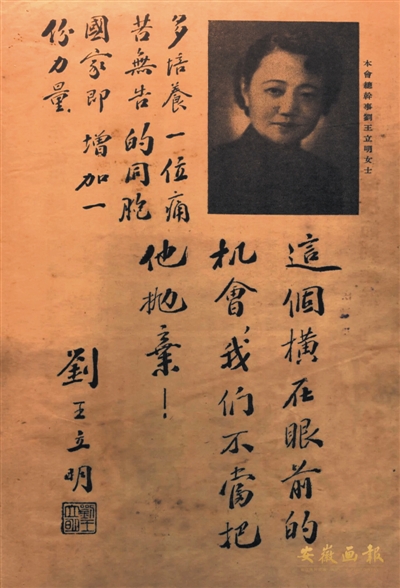 本會總幹事劉王立明女士
多培養一位痛
苦無告的同胞
國家即增加一
份力量
這個橫在眼前的
机會，我们不當把
他抛棄！
劉王立明
劉王立明
安徽画报